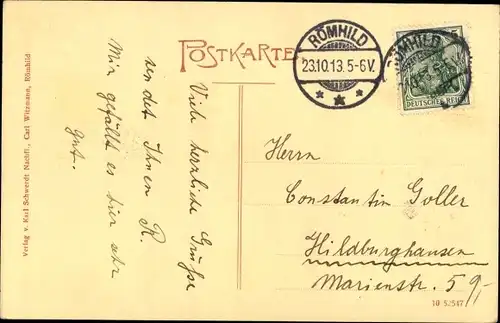 POSTKARTE
RÖMHILD
23.10.13.5-6V.
RÖMHILD
DEUTSCHES REICH
Viele herzliche Grüsse
sendet Ihnen R.
Mir gefällt es hier sehr
gut.
Herrn
Constantin Goller
Hildburghausen
Marienstr. 59/-
Verlag v. Karl Schwerdt Nachfl., Carl Witzmann, Römhild
10 52547